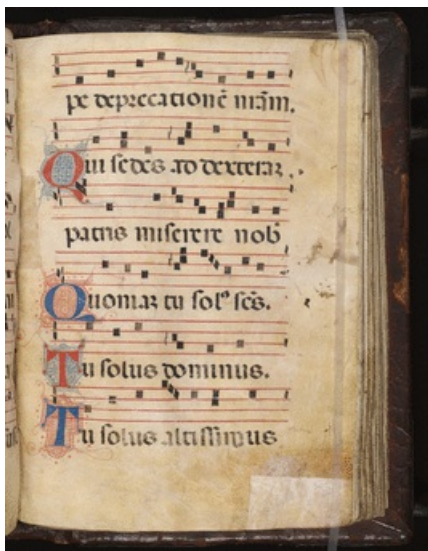 pe deprecationē nrām.
Qui sedes ad dexteraz
patris miserere nob
Quoniaz tu solꝰ scs.
Tu solus dominus.
Tu solus altissimus